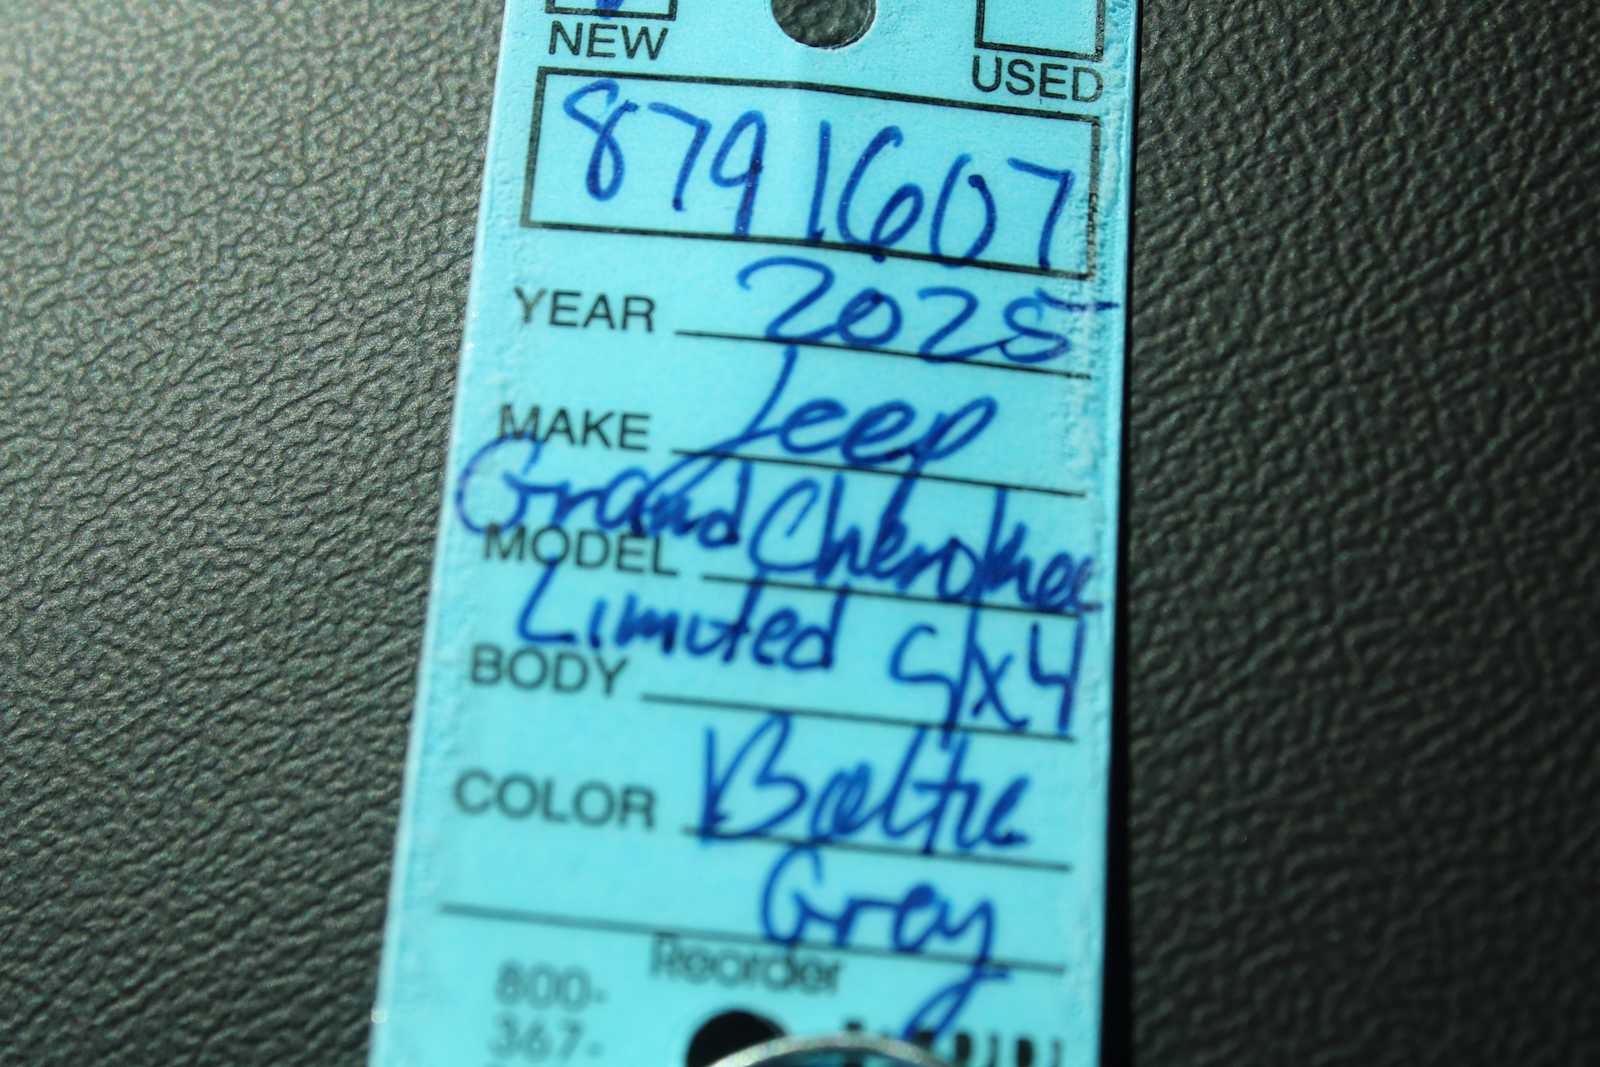 NEW USED
8791607
YEAR 2025
MAKE Jeep
MODEL Grand Cherokee
BODY Limited 4x4
COLOR Baltic
Grey
Reorder
800-
367-